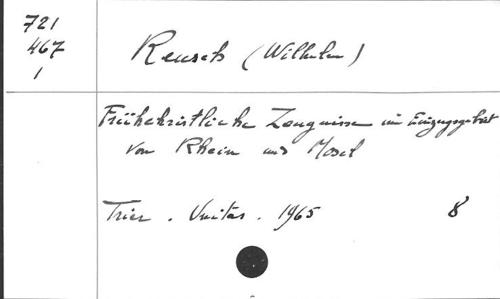 721
467
1
Reusch (Wilhelm)
Frühchristliche Zeugnisse im Einzugsgebiet
von Rhein und Mosel
Trier. Unitas. 1965 8